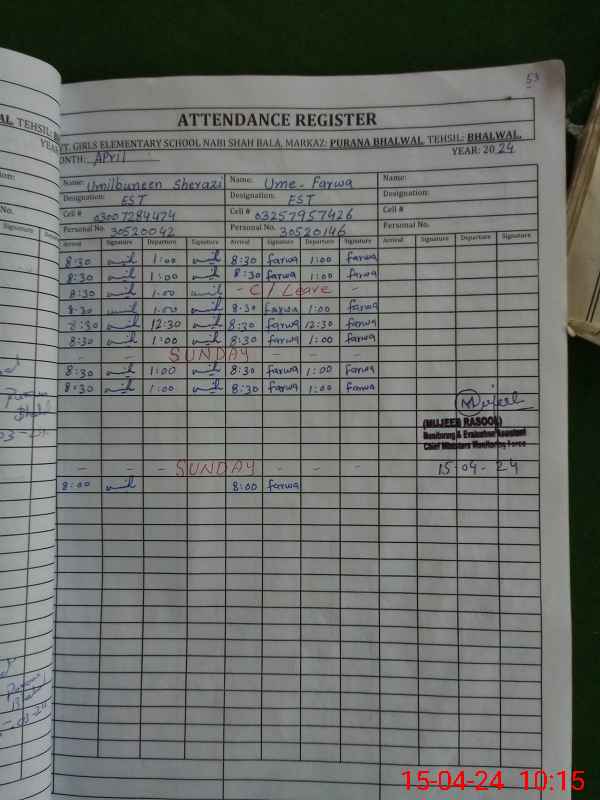 53
ATTENDANCE REGISTER
TEHSIL:
GIRLS ELEMENTARY SCHOOL NABI SHAH BALA, MARKAZ: PURANA BHALWAL TEHSIL: BHALWAL.
MONTH: April YEAR: 2024
Name: Umilbuneen Sherazi Name: Ume-Farwa Name:
Designation: EST Designation: EST Designation:
Cell # 03007284474 Cell # 03257957426 Cell #
Personal No. 30520042 Personal No. 30520146 Personal No.
Arrival Signature Departure Signature Arrival Signature Departure Signature Arrival Signature Departure Signature
8:30 1:00 8:30 farwa 1:00 farwa
8:30 1:00 8:30 farwa 1:00 farwa
8:30 1:00 - C/Leave -
8:30 1:00 8:30 farwa 1:00 farwa
8:30 12:30 8:30 farwa 12:30 farwa
8:30 1:00 8:30 farwa 1:00 farwa
- - SUNDAY - - -
8:30 1:00 8:30 farwa 1:00 farwa
8:30 1:00 8:30 farwa 1:00 farwa
Mujeeb
(MUJEEB RASOOL)
Monitoring & Evaluation Assistant
Chief Ministers Monitoring Force
- - SUNDAY - - - 15-04-24
8:00 8:00 farwa
15-04-24 10:15